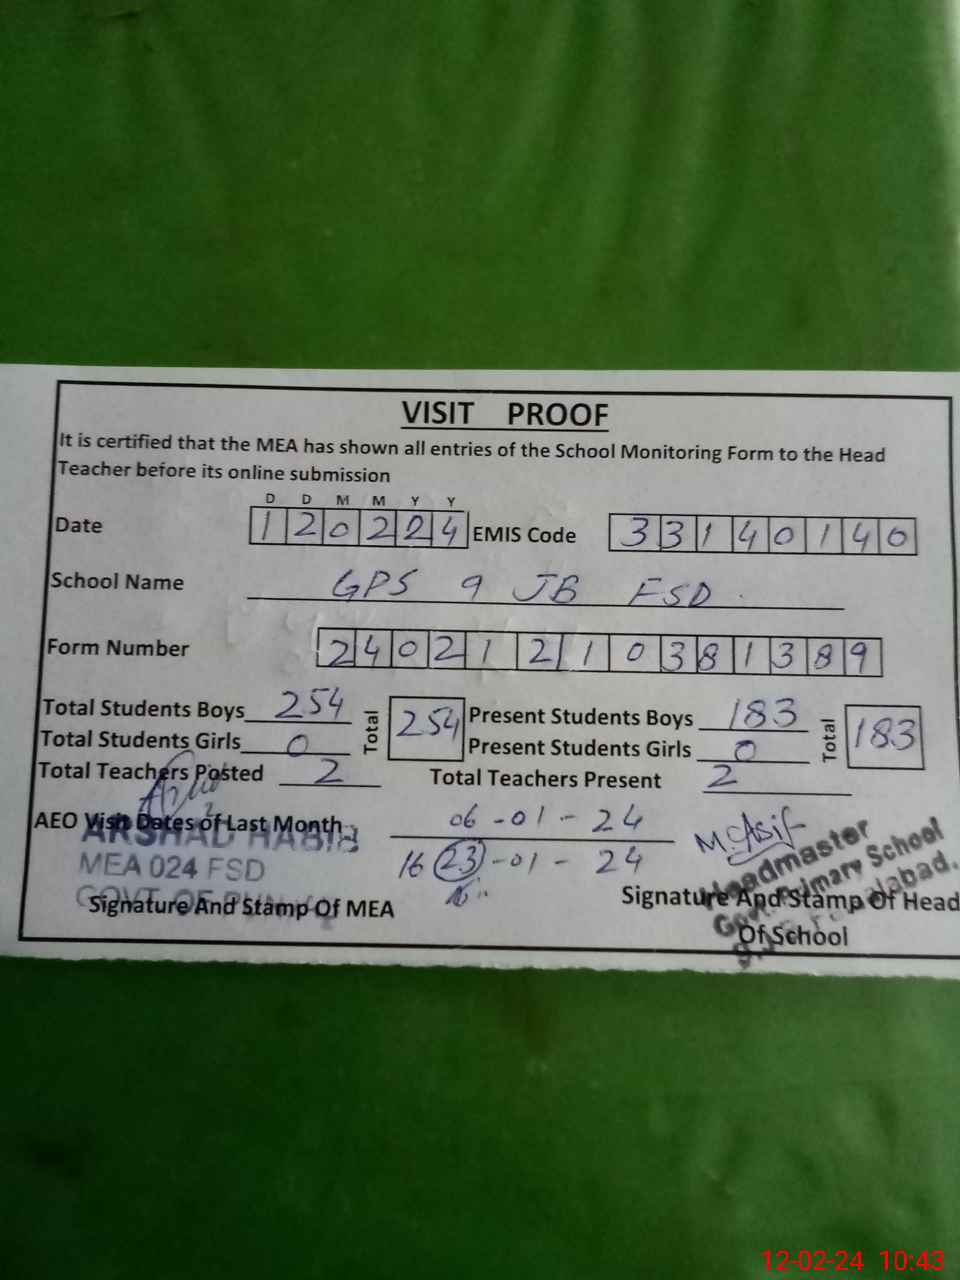 VISIT PROOF
It is certified that the MEA has shown all entries of the School Monitoring Form to the Head
Teacher before its online submission
D D M M Y Y
Date 1 2 0 2 2 4 EMIS Code 3 3 1 4 0 1 4 0
School Name GPS 9 JB FSD
Form Number 2 4 0 2 1 2 1 0 3 8 1 3 8 9
Total Students Boys 254 Total 254 Present Students Boys 183 Total 183
Total Students Girls 0 Present Students Girls 0
Total Teachers Posted 2 Total Teachers Present 2
AEO Visit Dates of Last Month 06-01-24
16 23-01-24
M. Asif
ARSHAD HABIB
MEA 024 FSD
GOVT OF
Headmaster
Govt. Primary School
Signature And Stamp Of MEA
Signature And Stamp Of Head
Of School
12-02-24 10:43